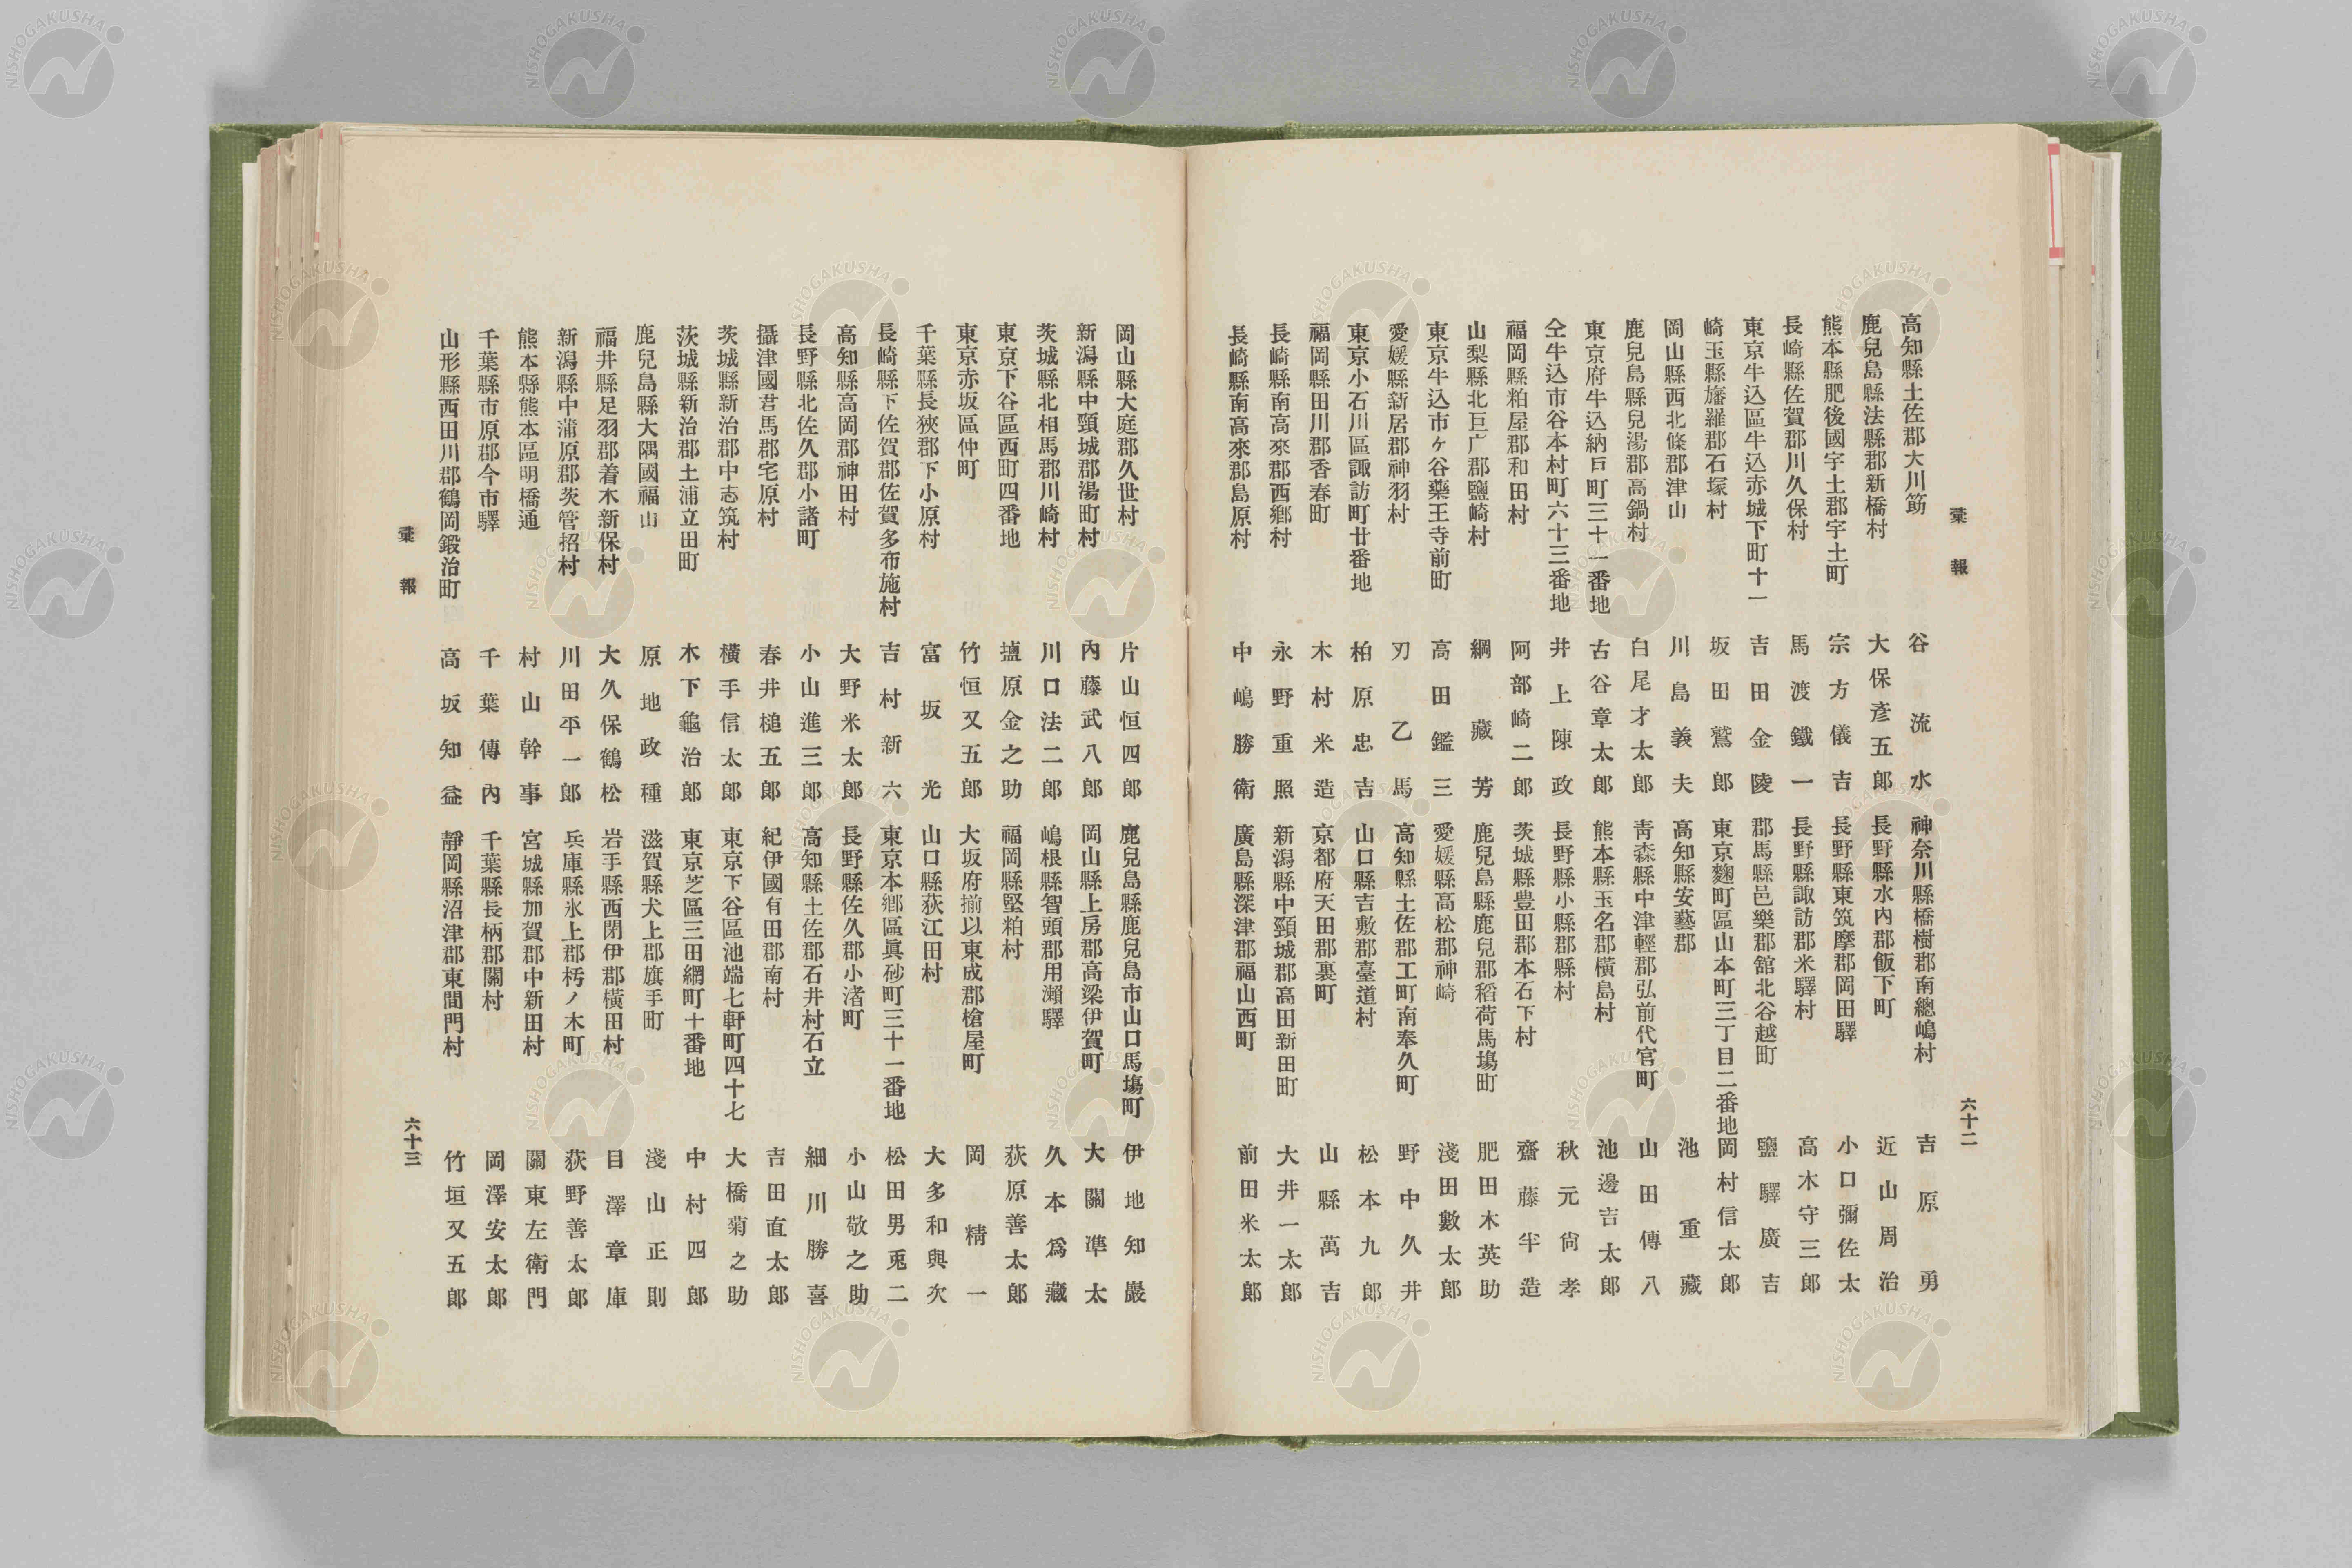 彙報
六十二
高知縣土佐郡大川筋 谷流水
鹿兒島縣法縣郡新橋村 大保彥五郎
熊本縣肥後國宇土郡宇土町 宗方儀吉
長崎縣佐賀郡川久保村 馬渡鐵一
東京牛込區牛込赤城下町十一 吉田金陵
崎玉縣旛羅郡石塚村 坂田鷲郎
岡山縣西北條郡津山 川島義夫
鹿兒島縣兒湯郡高鍋村 白尾才太郎
東京府牛込納戶町三十一番地 古谷章太郎
仝牛込市谷本村町六十三番地 井上陳政
福岡縣粕屋郡和田村 阿部崎二郎
山梨縣北巨广郡鹽崎村 綱藏芳
東京牛込市ヶ谷藥王寺前町 高田鑑三
愛媛縣新居郡神羽村 刃乙馬
東京小石川區諏訪町廿番地 柏原忠吉
福岡縣田川郡香春町 木村米造
長崎縣南高來郡西鄕村 永野重照
長崎縣南高來郡島原村 中嶋勝衛
神奈川縣橋樹郡南總嶋村 吉原勇
長野縣水內郡飯下町 近山周治
長野縣東筑摩郡岡田驛 小口彌佐太
長野縣諏訪郡米驛村 高木守三郎
郡馬縣邑樂郡舘北谷越町 鹽驛廣吉
東京麴町區山本町三丁目二番地 岡村信太郎
高知縣安藝郡 池重藏
靑森縣中津輕郡弘前代官町 山田傳八
熊本縣玉名郡橫島村 池邊吉太郎
長野縣小縣郡縣村 秋元尙孝
茨城縣豊田郡本石下村 齋藤半造
鹿兒島縣鹿兒郡稻荷馬塲町 肥田木英助
愛媛縣高松郡神崎 淺田數太郎
高知縣土佐郡工町南奉久町 野中久井
山口縣吉敷郡臺道村 松本九郎
京都府天田郡裏町 山縣萬吉
新潟縣中頸城郡高田新田町 大井一太郎
廣島縣深津郡福山西町 前田米太郎
岡山縣大庭郡久世村 片山恒四郎
新潟縣中頸城郡湯町村 內藤武八郎
茨城縣北相馬郡川崎村 川口法二郎
東京下谷區西町四番地 塩原金之助
東京赤坂區仲町 竹恒又五郎
千葉縣長狹郡下小原村 富坂光
長崎縣下佐賀郡佐賀多布施村 吉村新六
高知縣高岡郡神田村 大野米太郎
長野縣北佐久郡小諸町 小山進三郎
攝津國君馬郡宅原村 春井槌五郎
茨城縣新治郡中志筑村 橫手信太郎
茨城縣新治郡土浦立田町 木下龜治郎
鹿兒島縣大隅國福山 原地政種
福井縣足羽郡着木新保村 大久保鶴松
新潟縣中蒲原郡茨管招村 川田平一郎
熊本縣熊本區明橋通 村山幹事
千葉縣市原郡今市驛 千葉傳內
山形縣西田川郡鶴岡鍛治町 高坂知益
鹿兒島縣鹿兒島市山口馬塲町 伊地知嚴
岡山縣上房郡高梁伊賀町 大關準太
嶋根縣智頭郡用瀨驛 久本爲藏
福岡縣堅粕村 荻原善太郎
大坂府揃以東成郡槍屋町 岡精一
山口縣荻江田村 大多和與次
東京本鄕區眞砂町三十一番地 松田男兎二
長野縣佐久郡小渚町 小山敬之助
高知縣土佐郡石井村石立 細川勝喜
紀伊國有田郡南村 吉田直太郎
東京下谷區池端七軒町四十七 大橋菊之助
東京芝區三田網町十番地 中村四郎
滋賀縣犬上郡旗手町 淺山正則
岩手縣西閉伊郡橫田村 目澤章庫
兵庫縣氷上郡杤ノ木町 荻野善太郎
宮城縣加賀郡中新田村 關東左衞門
千葉縣長柄郡關村 岡澤安太郎
靜岡縣沼津郡東間門村 竹垣又五郎
彙報
六十三